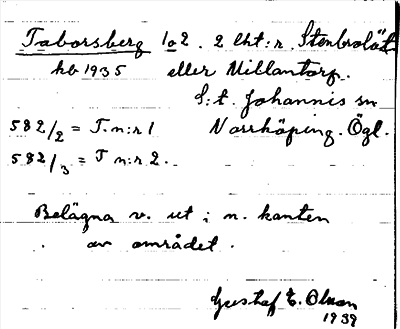 Taborsberg 1 o 2. 2 lht:r. Stenbrolöt
hb 1935 eller Millantorp.
S:t. Johannis sn
582/2 = T. n:r 1 Norrköping. Ögl.
582/3 = T n:r 2.
Belägna v. ut i n. kanten
av området.
Gustaf E. Olson
1939